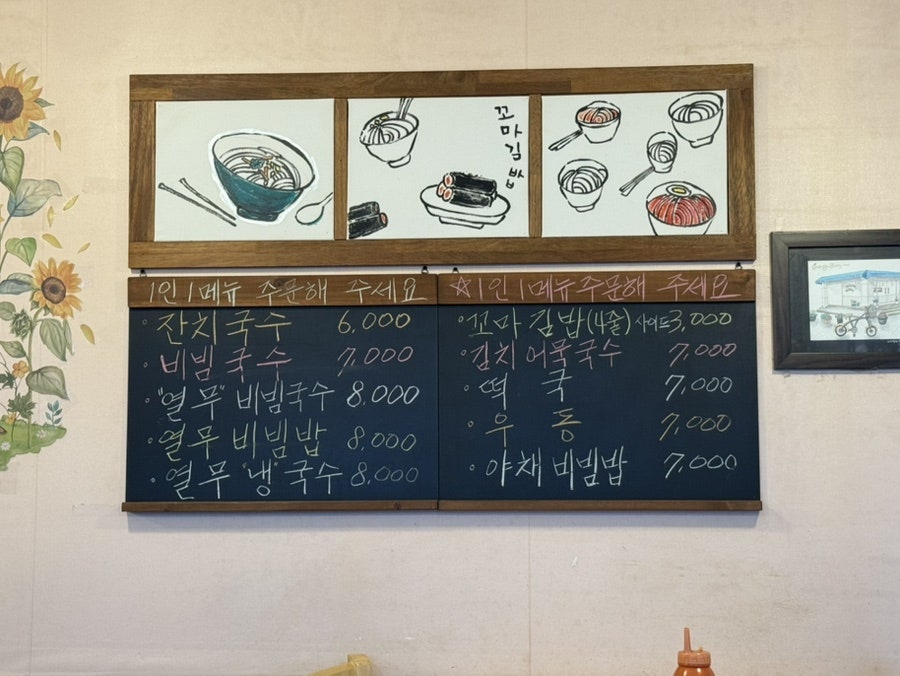 꼬마김밥
1인 1메뉴 주문해 주세요
잔치국수 6,000
비빔국수 7,000
"열무" 비빔국수 8,000
열무 비빔밥 8,000
열무 "냉" 국수 8,000
☆1인 1메뉴주문해 주세요
꼬마 김밥(4줄) 사이드 3,000
김치어묵국수 7,000
떡 국 7,000
우 동 7,000
야채 비빔밥 7,000